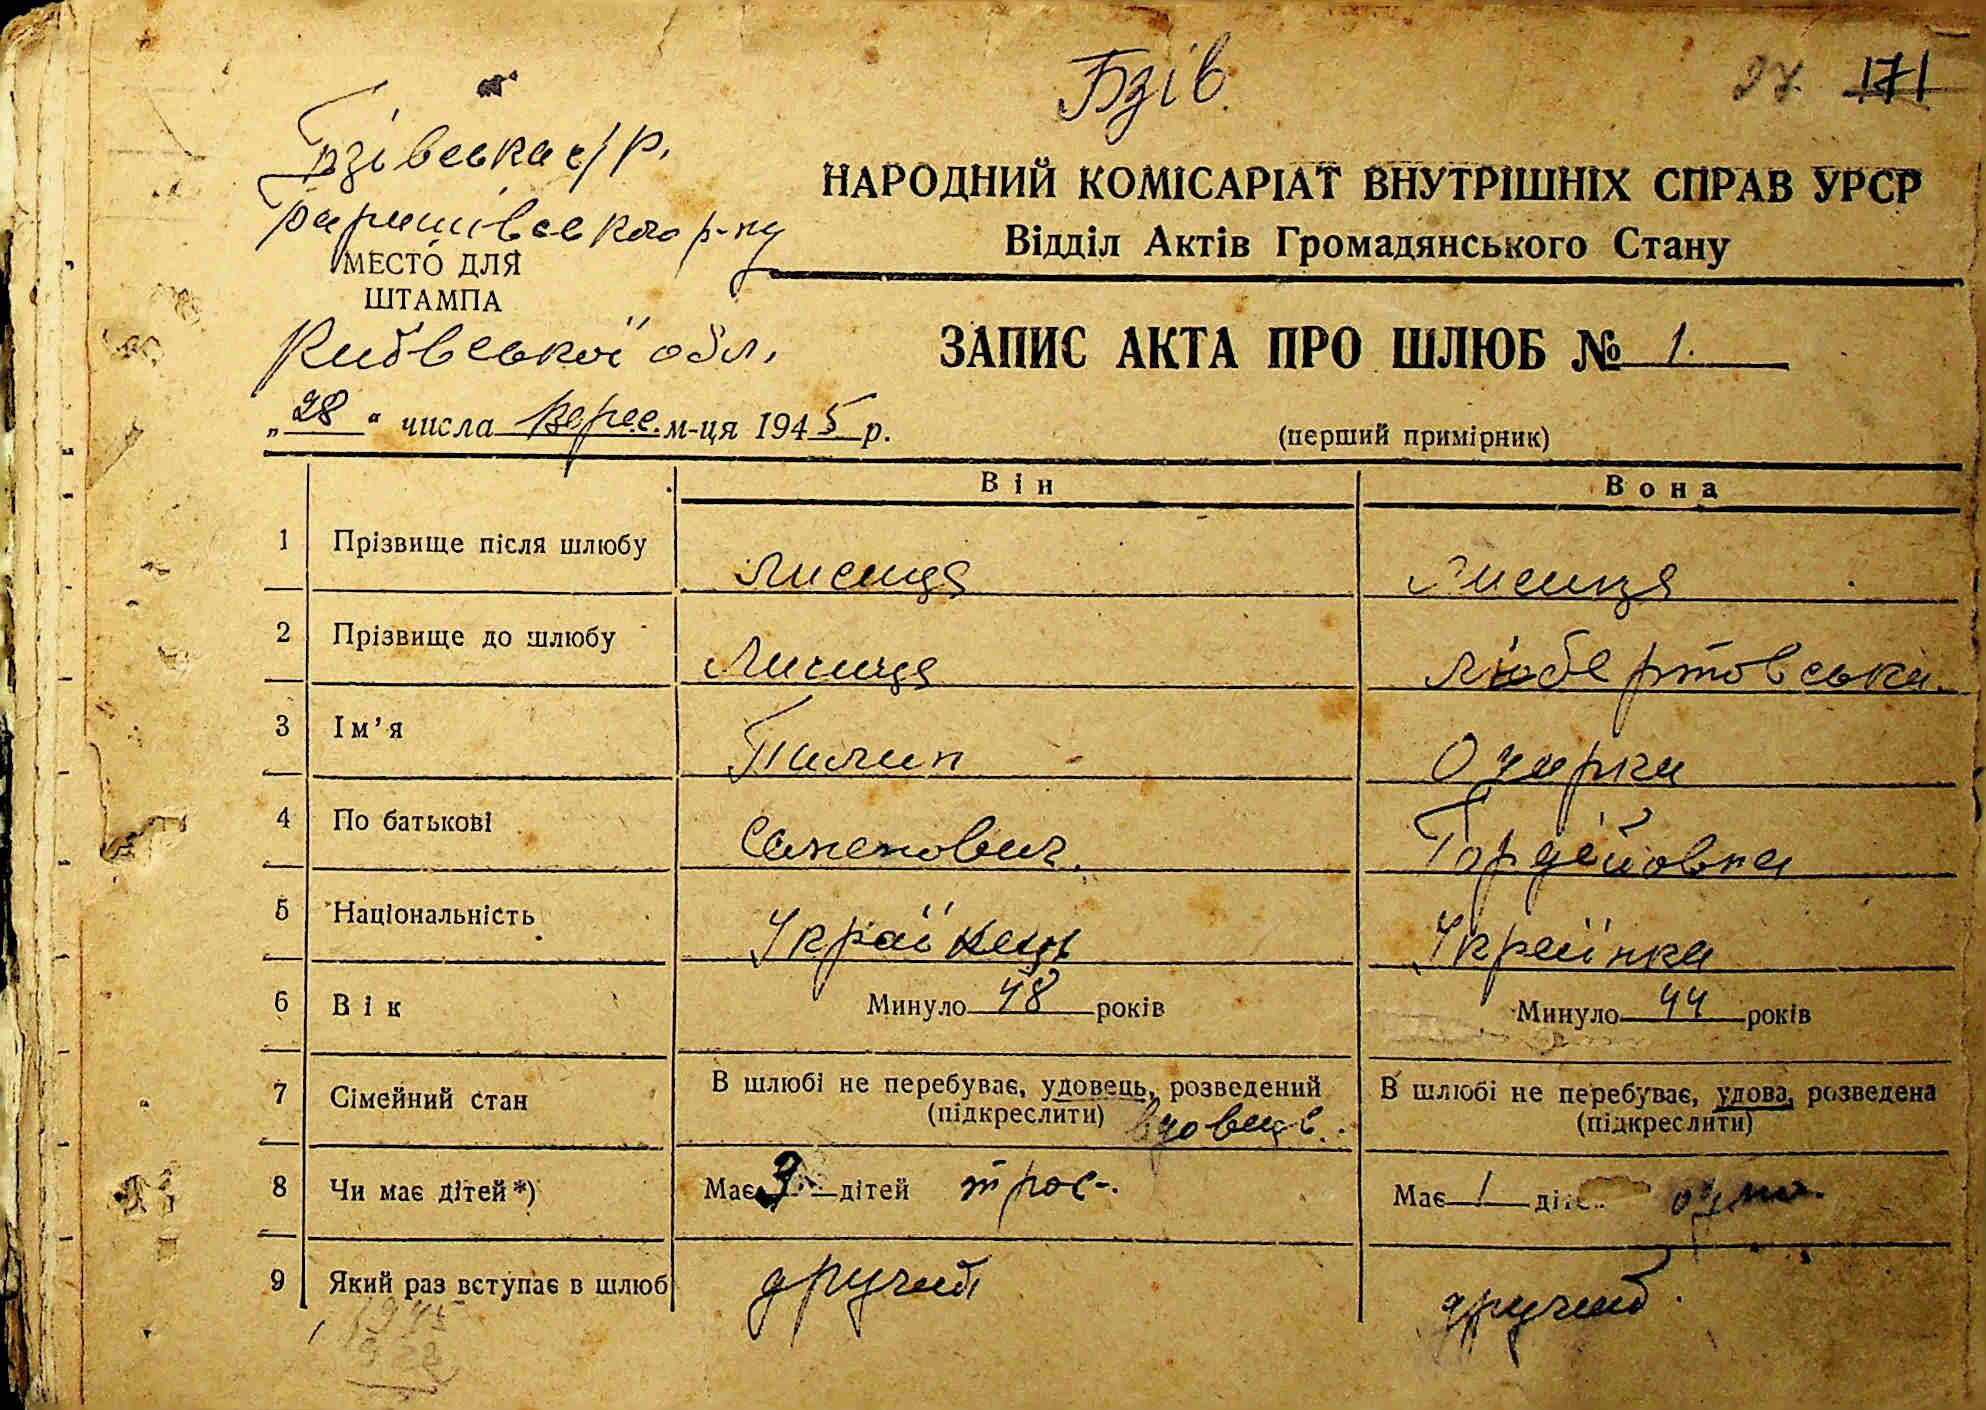 Бзів.
27. 171
Бзівська с/р.
Баришівського р-ну
МЕСТО ДЛЯ
ШТАМПА
Київської обл.
„28“ числа верес. м-ця 1945 р.
НАРОДНИЙ КОМІСАРІАТ ВНУТРІШНІХ СПРАВ УРСР
Відділ Актів Громадянського Стану
ЗАПИС АКТА ПРО ШЛЮБ № 1.
(перший примірник)
Він Вона
1 Прізвище після шлюбу Лисиця Лисиця
2 Прізвище до шлюбу Лисиця Любертовська.
3 Ім’я Пилип Одарка
4 По батькові Семенович. Гордійовна
5 Національність Українець Українка
6 Вік Минуло 48 років Минуло 44 років
7 Сімейний стан В шлюбі не перебуває, удовець, розведений В шлюбі не перебуває, удова, розведена
(підкреслити) вдовець. (підкреслити)
8 Чи має дітей*) Має 3 дітей троє. Має 1 діт
9 Який раз вступає в шлюб другий другий.
1945